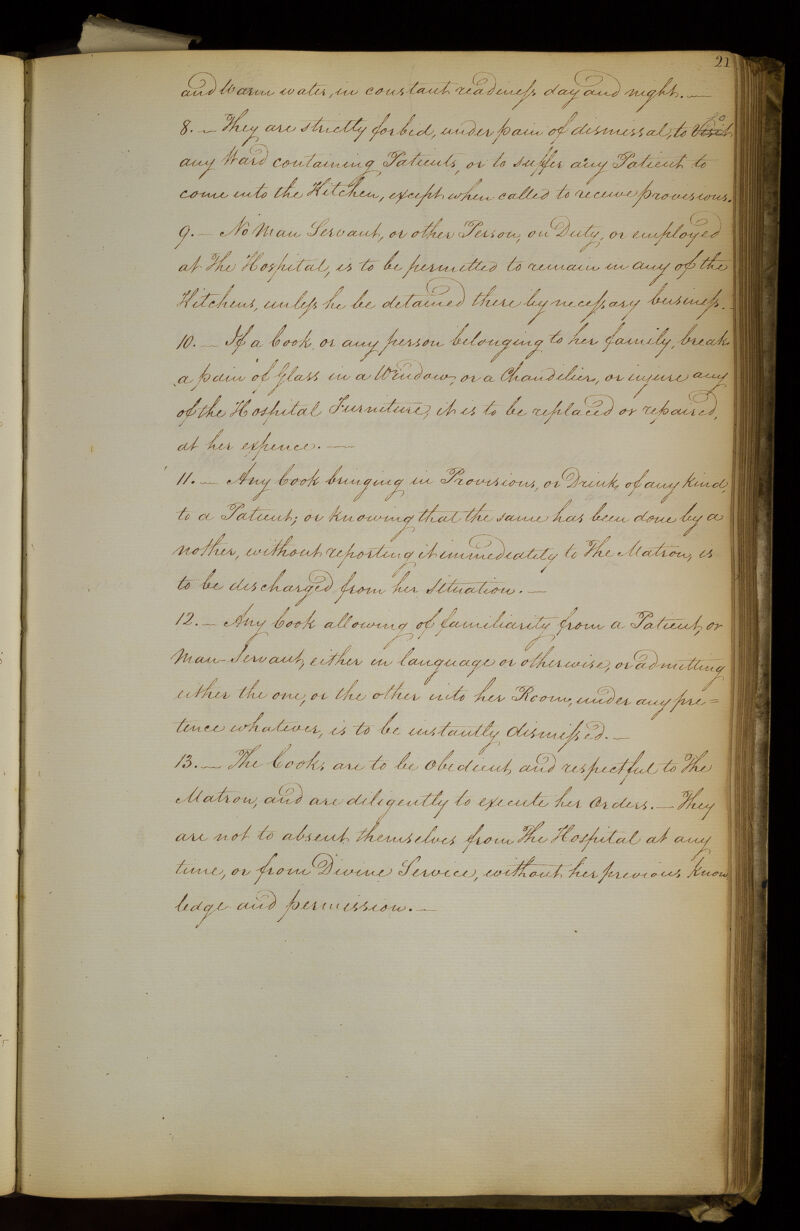 21
and Warm water, in constant readiness day and night. —
8. — They are strictly forbed, under pain of dismissal, to visit
any Ward containing Patients, or to suffer any Patient to
come into the Kitchen, except when called to receive provisions.
9. — No Man Servant, or other Person, on Duty, or employed
at The Hospital, is to be permitted to remain in any of the
Kitchens, unless he be detained there by necessary business. —
10. — If a Cook, or any person belonging to her family, break
a pain of Glass in a Window, or a Chandelier, or injure any
of the Hospital Furniture, it is to be replaced or repaired,
at her expence. —
11. — Any Cook bringing in Provisions, or Drink of any kind,
to a Patient; or knowing that the same has been done by a
nother, without reporting it immediately to The Matron, is
to be discharged from her Situation. —
12. — Any Cook allowing of familiarity from a Patient, or
Man-Servant, either in language or otherwise, or admitting
either the one, or the other into her Room, under any pre=
tence whatever, is to be instantly dismissed. —
13. — The Cooks are to be Obedient, and respectful to The
Matron, and are diligently to execute her Orders. — They
are not to absent themselves from The Hospital at any
time, or from Divine Service, without her previous Know
ledge and permission. —